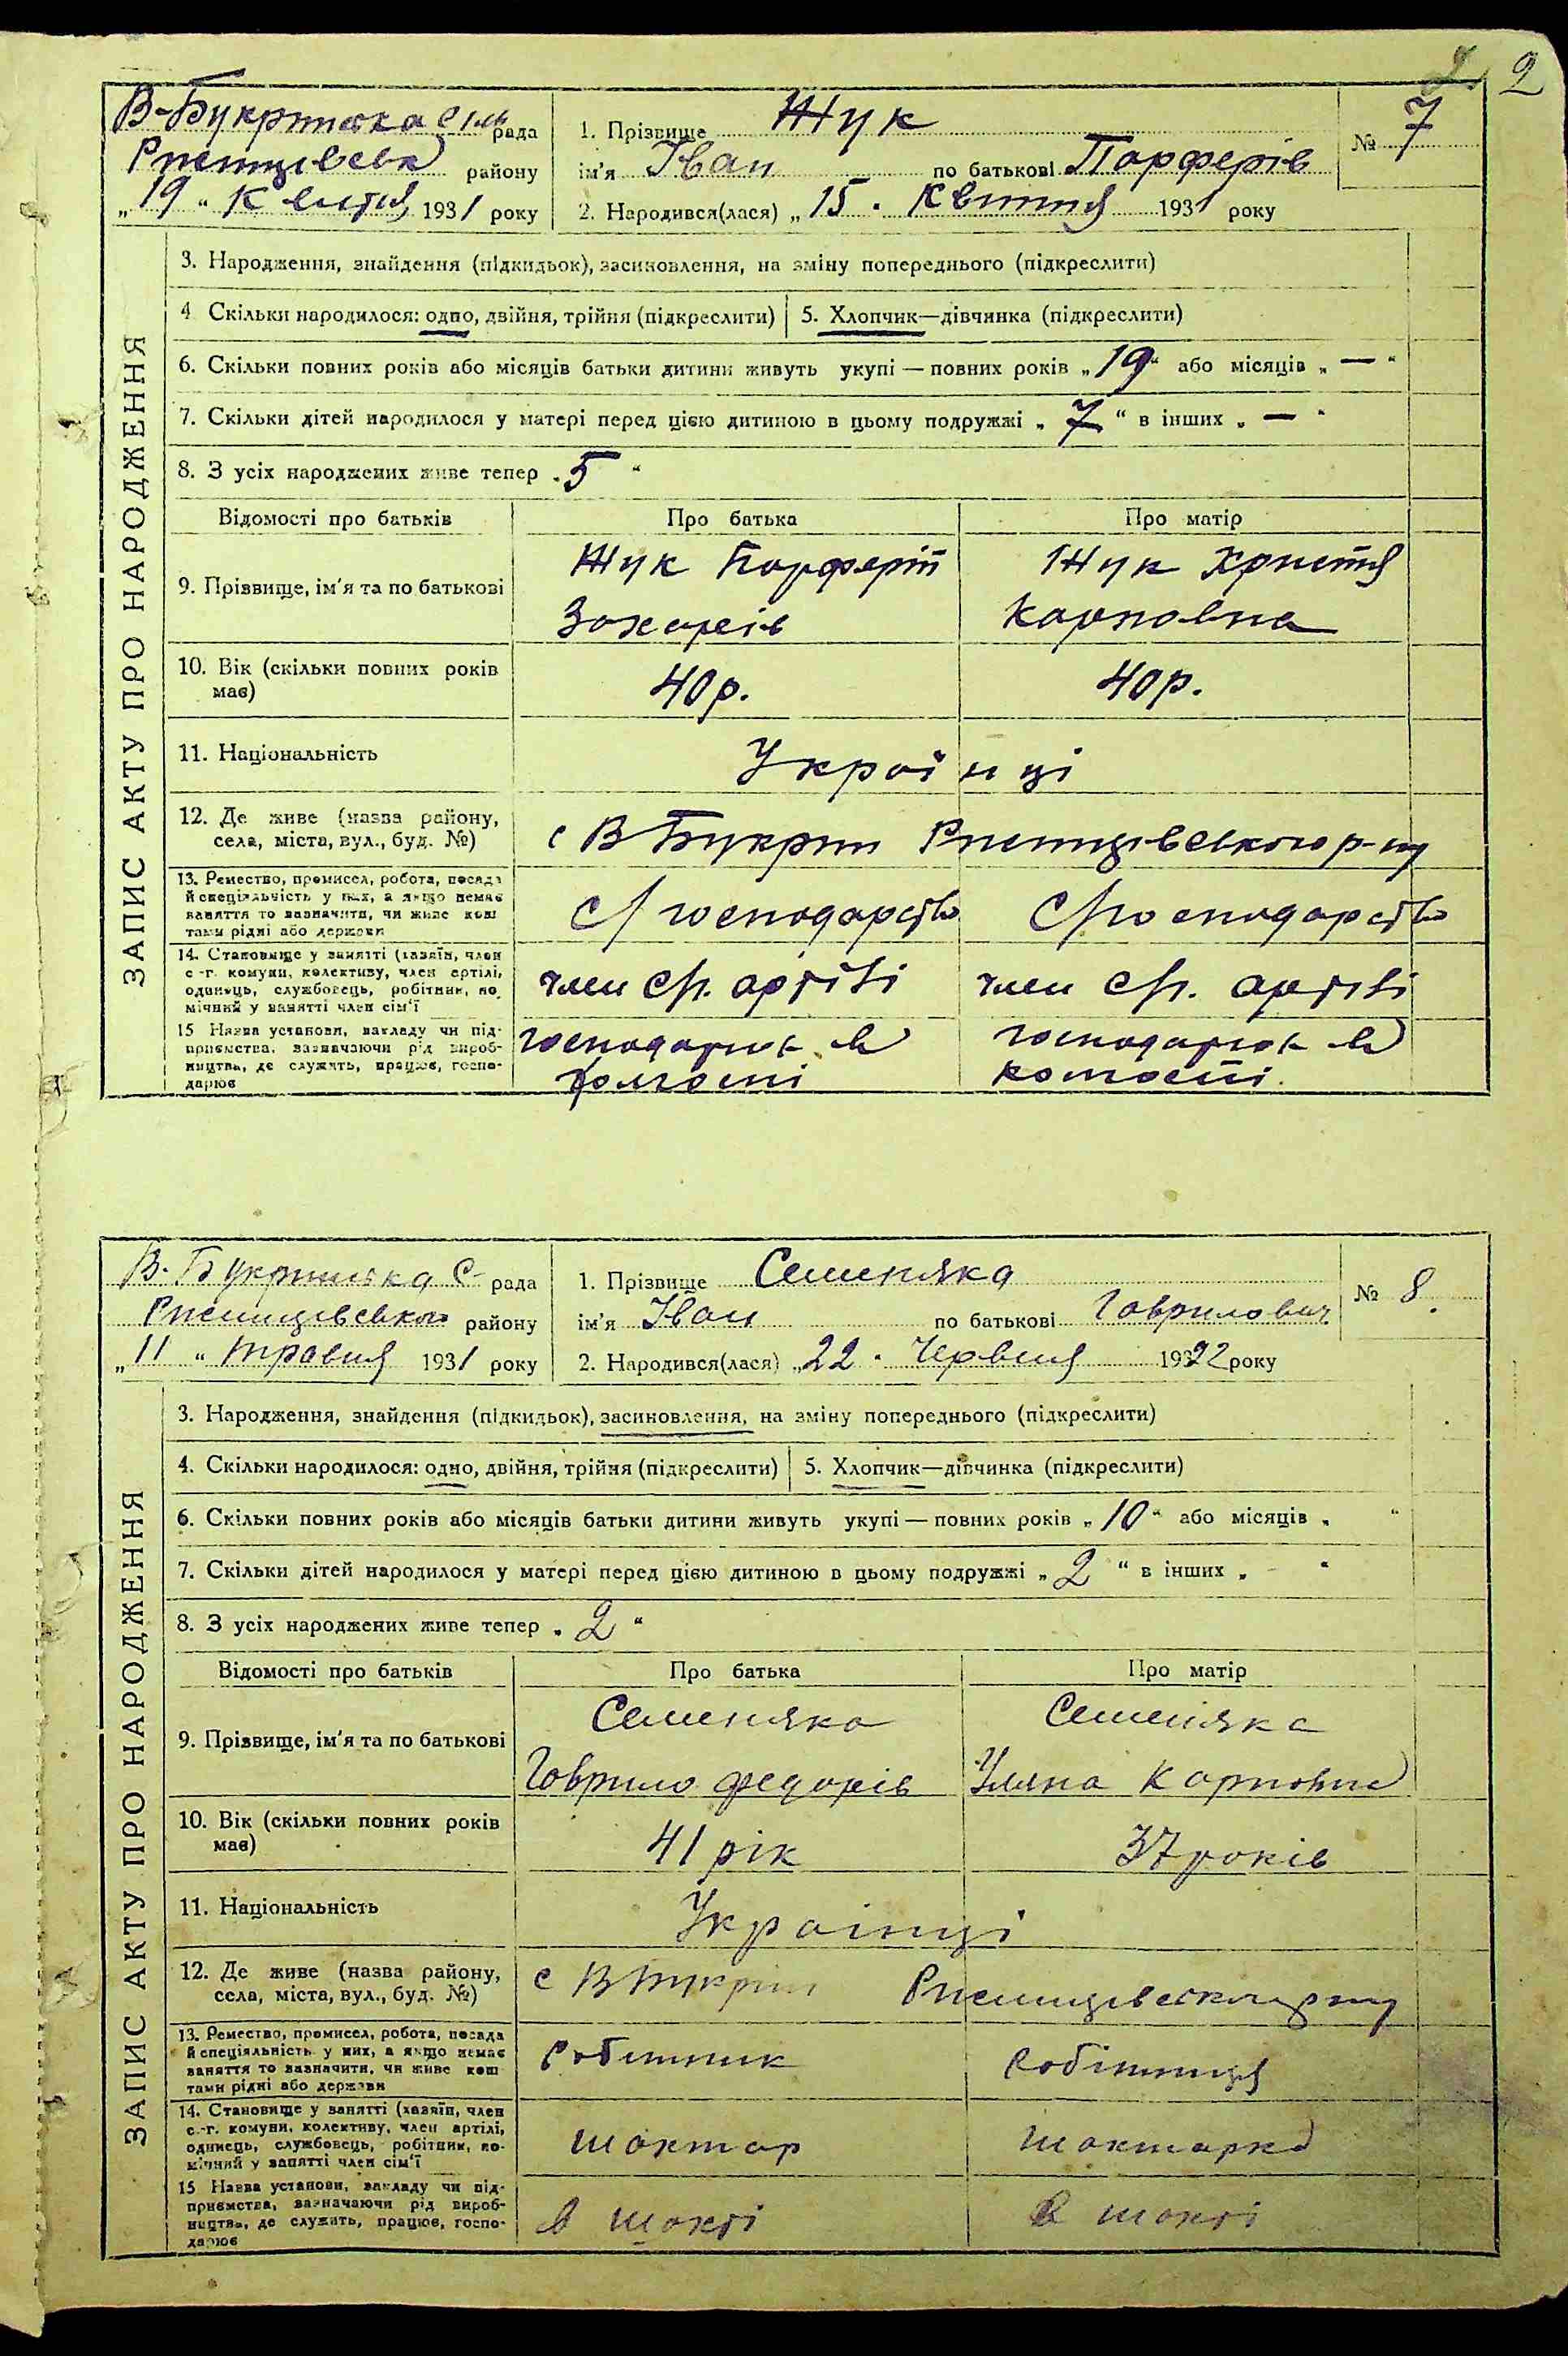 2
В-Букринська сіль рада
Ржищівськ району
„19“ Квітня 1931 року
1. Прізвище Жук
ім'я Іван по батькові Парферів
2. Народився(лася) „15. Квітня 1931 року
№ 7
ЗАПИС АКТУ ПРО НАРОДЖЕННЯ
3. Народження, знайдення (підкидьок), засиновлення, на зміну попереднього (підкреслити)
4 Скільки народилося: одно, двійня, трійня (підкреслити) 5. Хлопчик—дівчинка (підкреслити)
6. Скільки повних років або місяців батьки дитини живуть укупі — повних років „19“ або місяців „—“
7. Скільки дітей народилося у матері перед цією дитиною в цьому подружжі „7“ в інших „—“
8. З усіх народжених живе тепер „5“
Відомості про батьків Про батька Про матір
9. Прізвище, ім'я та по батькові
Жук Парферій
Захарів
Жук Христя
Карповна
10. Вік (скільки повних років
має)
40р. 40р.
11. Національність Українці
12. Де живе (назва району,
села, міста, вул., буд. №)
с В Букрин Ржищівського р-ну
13. Ремество, промисел, робота, посада
й спеціяльність у них, а якщо немає
заняття то зазначити, чи живе кош
тами рідні або держави
С/господарство С/господарство
14. Становище у занятті (хазяїн, член
с.-г. комуни, колективу, член артілі,
одинець, службовець, робітник, по
мічний у занятті член сім'ї
член с/г. артілі член с/г. артілі
15 Назва установи, закладу чи під-
приємства, зазначаючи рід вироб-
ництва, де служить, працює, госпо-
дарює
В-Букринська С- рада
Ржищівського району
„11“ травня 1931 року
1. Прізвище Семеняка
ім'я Іван по батькові Гаврилович
2. Народився(лася) „22. Червня 1922 року
№ 8.
ЗАПИС АКТУ ПРО НАРОДЖЕННЯ
3. Народження, знайдення (підкидьок), засиновлення, на зміну попереднього (підкреслити)
4. Скільки народилося: одно, двійня, трійня (підкреслити) 5. Хлопчик—дівчинка (підкреслити)
6. Скільки повних років або місяців батьки дитини живуть укупі — повних років „10“ або місяців „ “
7. Скільки дітей народилося у матері перед цією дитиною в цьому подружжі „2“ в інших „-“
8. З усіх народжених живе тепер „2“
Відомості про батьків Про батька Про матір
9. Прізвище, ім'я та по батькові
Семеняка
Гаврило Федорів
Семеняка
Уляна Карповна
10. Вік (скільки повних років
має)
41 рік 37 років
11. Національність Українці
12. Де живе (назва району,
села, міста, вул., буд. №)
с В Букрин Ржищівського р-ну
13. Ремество, промисел, робота, посада
й спеціяльність у них, а якщо немає
заняття то зазначити, чи живе кош
тами рідні або держави
робітник робітниця
14. Становище у занятті (хазяїн, член
с.-г. комуни, колективу, член артілі,
одинець, службовець, робітник, по-
мічний у занятті член сім'ї
шахтар шахтарка
15 Назва установи, закладу чи під-
приємства, зазначаючи рід вироб-
ництва, де служить, працює, госпо-
дарює
в шахті в шахті